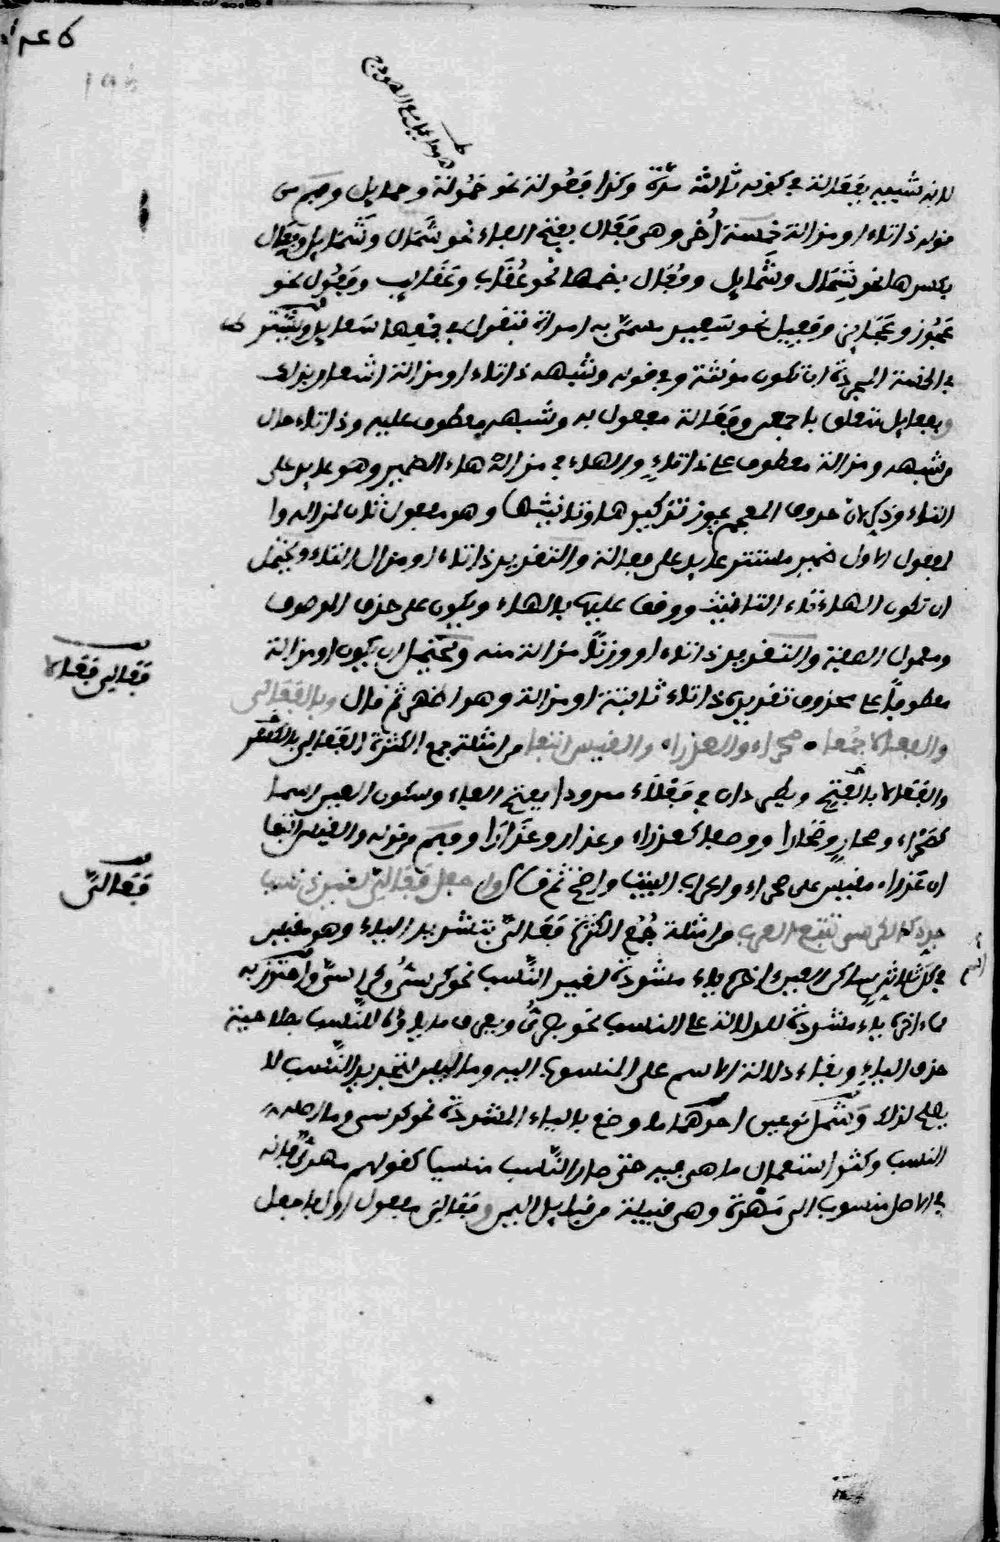 لانه شبيه بفعالة في كونه ثالثه مدة وكذا فعولة نحو حمولة وحمايل وفهم من
قوله ذا تاء او مزالة خمسة أخر وهي فعال بفتح الفاء نحو شمال وشمايل وفعال
بكسرها نحو شمال وشمايل وفعال بضمها نحو عقاب وعقايب وفعول نحو
عجوز وعجايز وفعيل نحو سعيد مسمى به امراة فتقول في جمعها سعايد ويشترط
في الخمسة المجردة ان تكون مؤنثة وفي قوله وشبهه ذا تاء او مزالة اشعار بذلك
وبفعايل متعلق باجمعن وفعالة مفعول به وشبهه معطوف عليه وذا تاء حال
من شبهه ومزالة معطوف على ذا تاء والهاء في مزاله هاء الضمير وهو عايد على
التاء وذكر لان حروف المعجم يجوز تذكيرها وتانيثها وهو مفعول ثان لمزاله وا
لمفعول الاول ضمير مستتر عايد على فعالة والتقدير ذا تاء او مزال التاء ويحتمل
ان تكون الهاء تاء التانيث ووقف عليها بالهاء ويكون على حذف الموصوف
ومعمول الصفة والتقدير ذا تاء او وزنا مزالة منه ويحتمل ان يكون او مزالة
معطوفا على محذوف تقديره ذا تاء ثابتة او مزالة وهو اظهر ثم قال وبالفعالي
والفعالى جمعا صحراء والعذراء والقيس اتبعا من امثلة جمع الكثرة الفعالي بالكسر
والفعالى بالفتح ويطردان في فعلاء ممدودا بفتح الفاء وسكون العين اسما
كصحراء وصحار وصحارا ووصفا كعذراء وعذار وعذارا وفهم من قوله والقيس اتبعا
ان عذراء مقيس على صحراء واعراب البيت واضح ثم قال واجعل فعالي لغير ذي نسب
جدد كالكرسي تتبع العرب من امثلة جمع الكثرة فعالي بتشديد الياء وهو مقيس
في كل ثلاثي ساكن العين اخره ياء مشددة لغير النسب نحو كرسي وكراسي واحترز به
مما اخره ياء مشددة للدلالة على النسب نحو بصري ويعرف ما ياؤه للنسب بصلاحية
حذف الياء وبقاء دلالة الاسم على المنسوب اليه وما ليس لتجديد النسب لا
يصلح لذلك وشمل نوعين احدهما ما وضع بالياء المشددة نحو كرسي وما اصله
النسب وكثر استعمال ما هي فيه حتى صار النسب منسيا كقولهم مهري فانه
في الاصل منسوب الى مهرة وهي قبيلة من قبايل اليمن وفعالي مفعول اول باجعل
فعالي فعالى
فعالي